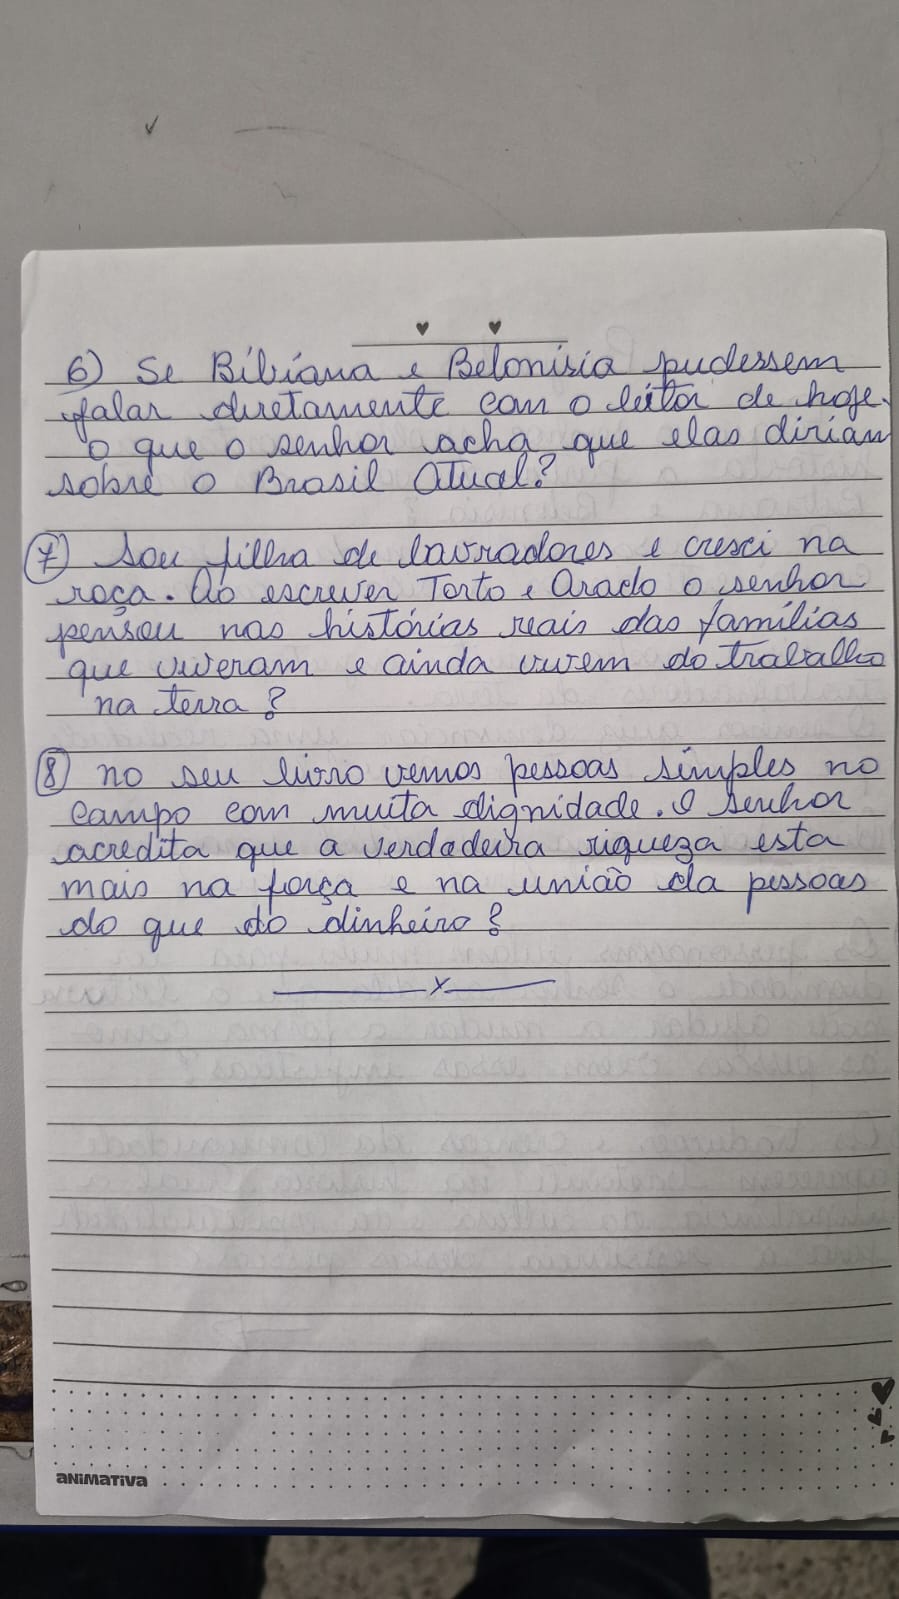 6) Se Bibiana e Belonisia pudessem
falar diretamente com o leitor de hoje.
o que o senhor acha que elas diriam
sobre o Brasil Atual?
7) Sou filha de lavradores e cresci na
roça. Ao escrever Torto e Arado o senhor
pensou nas histórias reais das famílias
que viveram e ainda vivem do trabalho
na terra?
8) no seu livro vemos pessoas simples no
campo com muita dignidade. O senhor
acredita que a verdadeira riqueza esta
mais na força e na união da pessoas
do que do dinheiro?
x
aNiMaTiVa